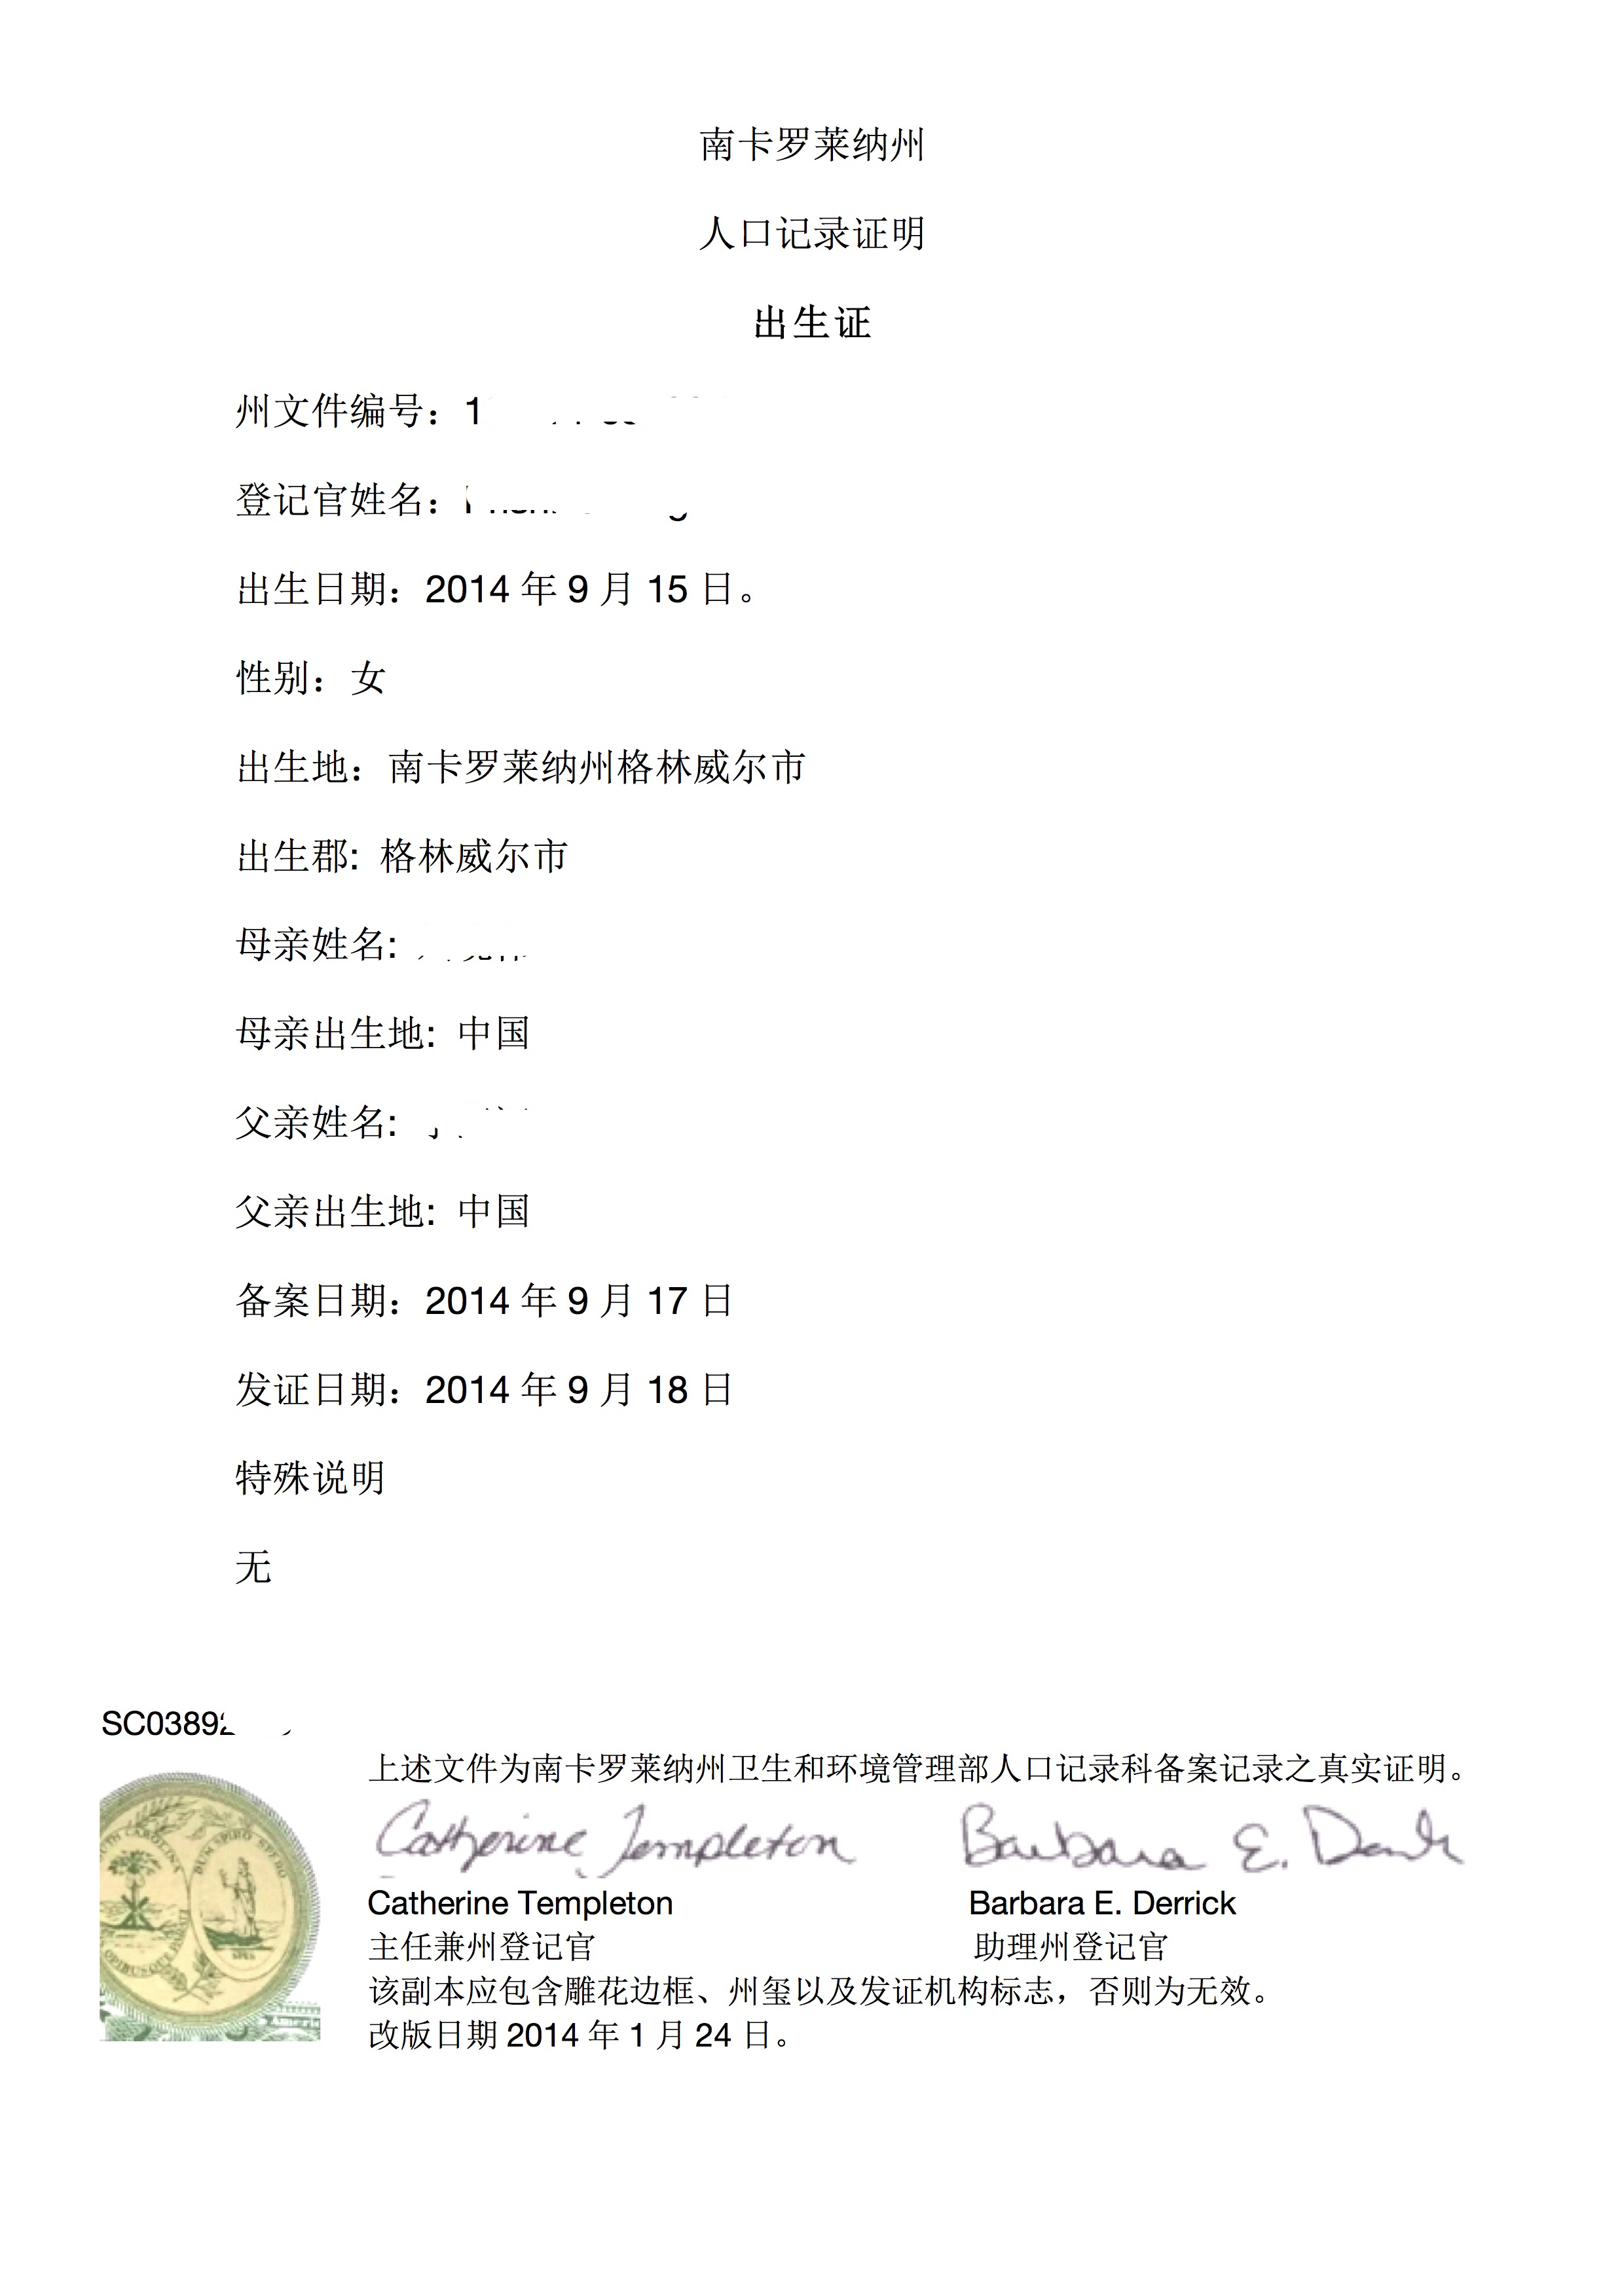 南卡罗莱纳州
人口记录证明
出生证
州文件编号：1
登记官姓名：
出生日期：2014 年 9 月 15 日。
性别：女
出生地：南卡罗莱纳州格林威尔市
出生郡: 格林威尔市
母亲姓名:
母亲出生地: 中国
父亲姓名:
父亲出生地: 中国
备案日期：2014 年 9 月 17 日
发证日期：2014 年 9 月 18 日
特殊说明
无
SC0389
上述文件为南卡罗莱纳州卫生和环境管理部人口记录科备案记录之真实证明。
Catherine Templeton Barbara E. Derrick
Catherine Templeton Barbara E. Derrick
主任兼州登记官 助理州登记官
该副本应包含雕花边框、州玺以及发证机构标志，否则为无效。
改版日期 2014 年 1 月 24 日。
CAROLINA DUM SPIRO SPERO
OPIBUSQUE
SPES